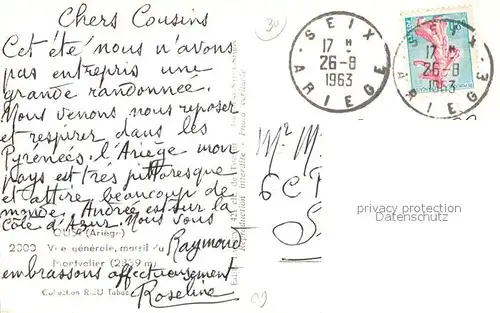 Chers Cousins
Cet été nous n'avons
pas entrepris une
grande randonnée.
Nous venons nous reposer
et respirer dans les
Pyrénées. l'Ariège mon
pays est très pittoresque
et attire beaucoup de
monde. Andrée est sur la
côte d'Azur. Nous vous
embrassons affectueusement
Raymond
Roseline
(Ariège)
2000 Vue générale, massif du
Montvalier (2839 m)
Collection RIEU Tabac
Reproduction interdite
30
SEIX
17 H
26-8
1963
ARIEGE
SEIX
17 H
26-8
1963
ARIEGE
Mr M
6 C
privacy protection
Datenschutz